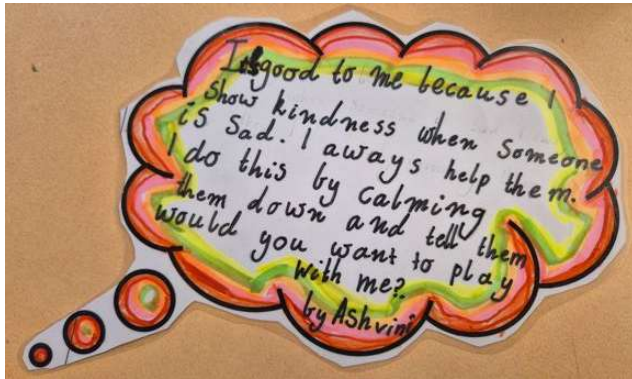 Its good to me because I
show kindness when someone
is sad. I aways help them.
I do this by calming
them down and tell them
would you want to play
with me?
by Ashvini